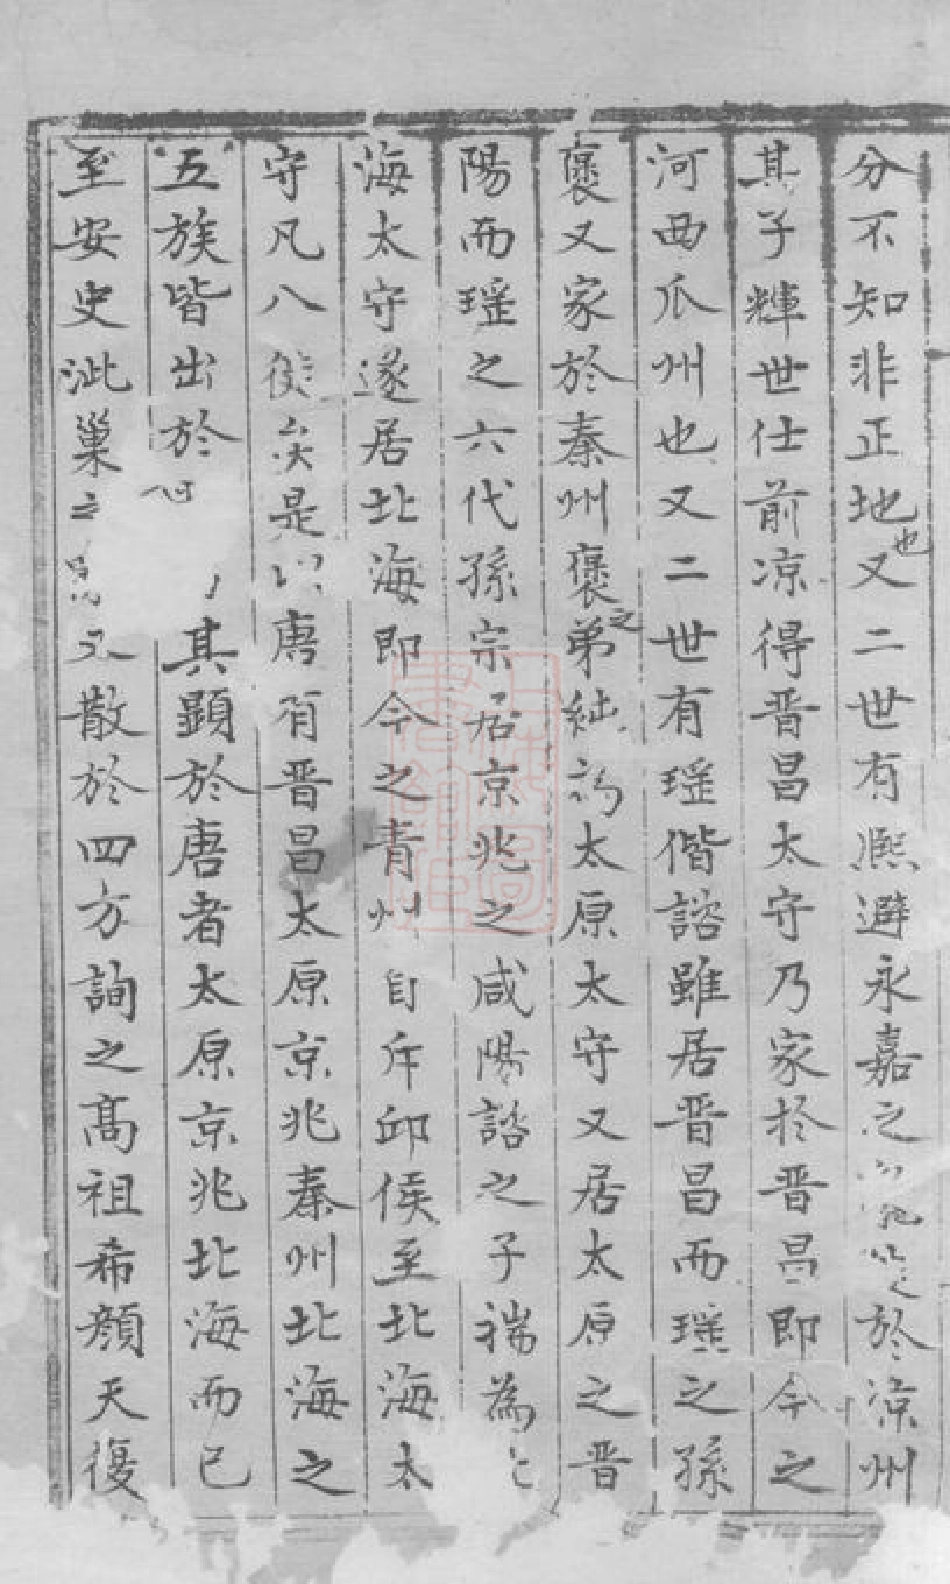 分不知非正地也又二世有熈避永嘉之地於涼州
其子輝世仕前凉得晋昌太守乃家於晋昌即今之
河西瓜州也又二世有瑶偕諮雖居晋昌而瑶之孫
褒又家於秦州褒之弟紬為太原太守又居太原之晋
陽而瑶之六代孫宗居京兆之咸陽諮之子瑞為
海太守遂居北海即今之青州自斥邱侯至北海太
守凡八徙矣是以唐有晋昌太原京兆秦州北海之
五族皆出於其顕於唐者太原京兆北海而已
至安史泚巢之又散於四方詢之髙祖希顔天復